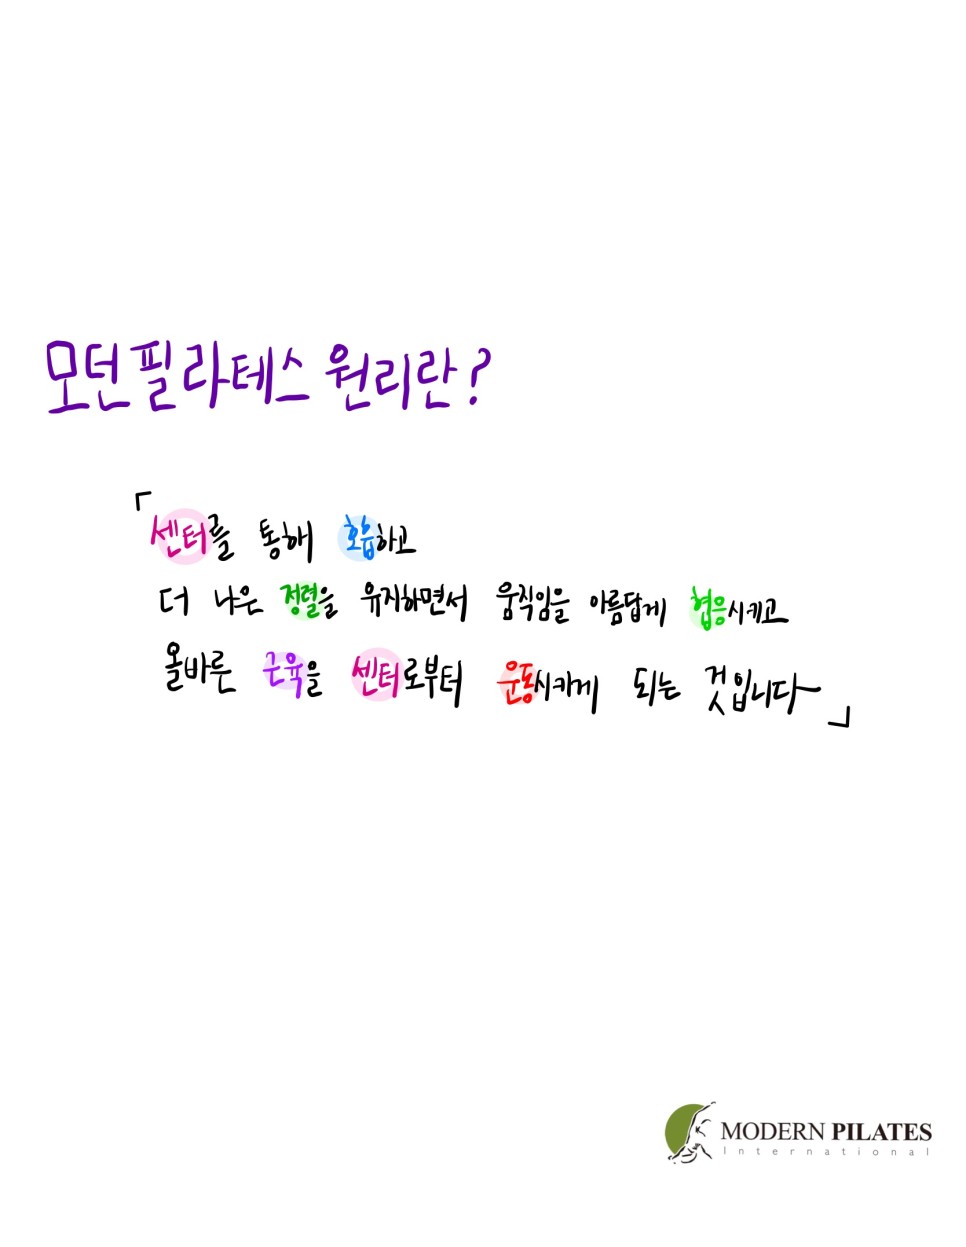 모던필라테스 원리란?
「센터를 통해 호흡하고
더 나은 정렬을 유지하면서 움직임을 아름답게 협응시키고
올바른 근육을 센터로부터 운동시키게 되는 것입니다」
MODERN PILATES
International